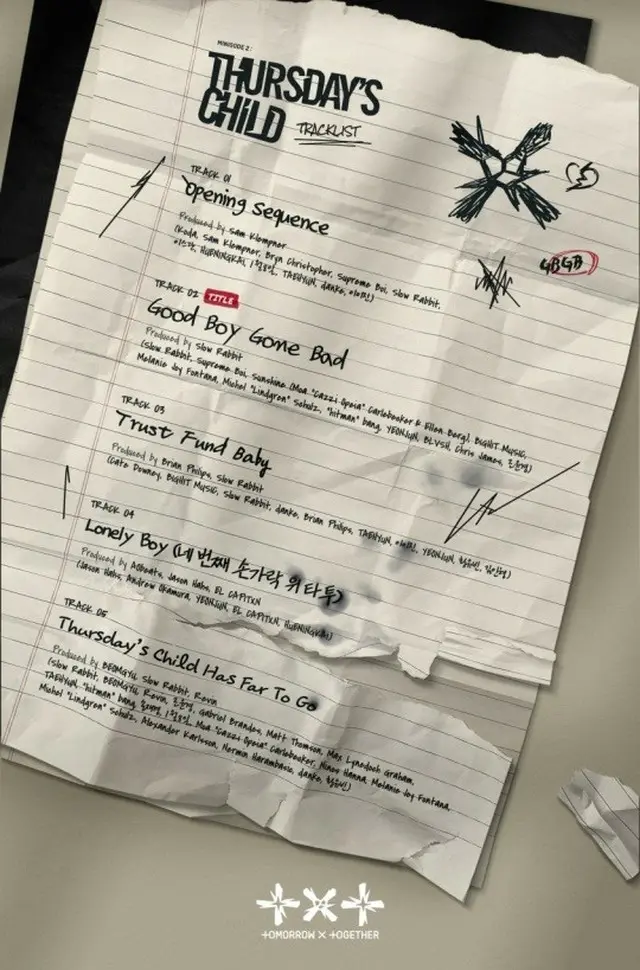 MINISODE 2:
THURSDAY'S
CHILD TRACKLIST
TRACK 01
Opening Sequence
Produced by Sam Klempner
(Koda, Sam Klempner, Bryn Christopher, Supreme Boi, Slow Rabbit,
이스란, HUENINGKAI, 1월8일, TAEHYUN, danke, 이이진)
GBGB
TRACK 02 TITLE
Good Boy Gone Bad
Produced by Slow Rabbit
(Slow Rabbit, Supreme Boi, Sunshine (Moa "Cazzi Opeia" Carlebecker & Ellen Berg), BIGHIT MUSIC,
Melanie Joy Fontana, Michel "Lindgren" Schulz, "hitman" bang, YEONJUN, BLVSH, Chris James,
TRACK 03
Trust Fund Baby
Produced by Brian Philips, Slow Rabbit
(Cate Downey, BIGHIT MUSIC, Slow Rabbit, danke, Brian Philips, TAEHYUN, YEONJUN, 황유빈,
TRACK 04
Lonely Boy (네 번째 손가락 위 타투)
Produced by Jason Hahs, EL CAPITXN
(Jason Hahs, Andrew Okamura, YEONJUN, EL CAPITXN, HUENINGKAI)
TRACK 05
Thursday's Child Has Far To Go
Produced by BEOMGYU, Slow Rabbit, Revin
(Slow Rabbit, BEOMGYU, Revin, Gabriel Brandes, Matt Thomson, Max Lynedoch Graham,
TAEHYUN, "hitman" bang, 1월8일, Moa "Cazzi Opeia" Carlebecker, Ninos Hanna, Melanie Joy Fontana,
Michel "Lindgren" Schulz, Alexander Karlsson, Nermin Harambasic, danke, 황유빈)
TOMORROW X TOGETHER